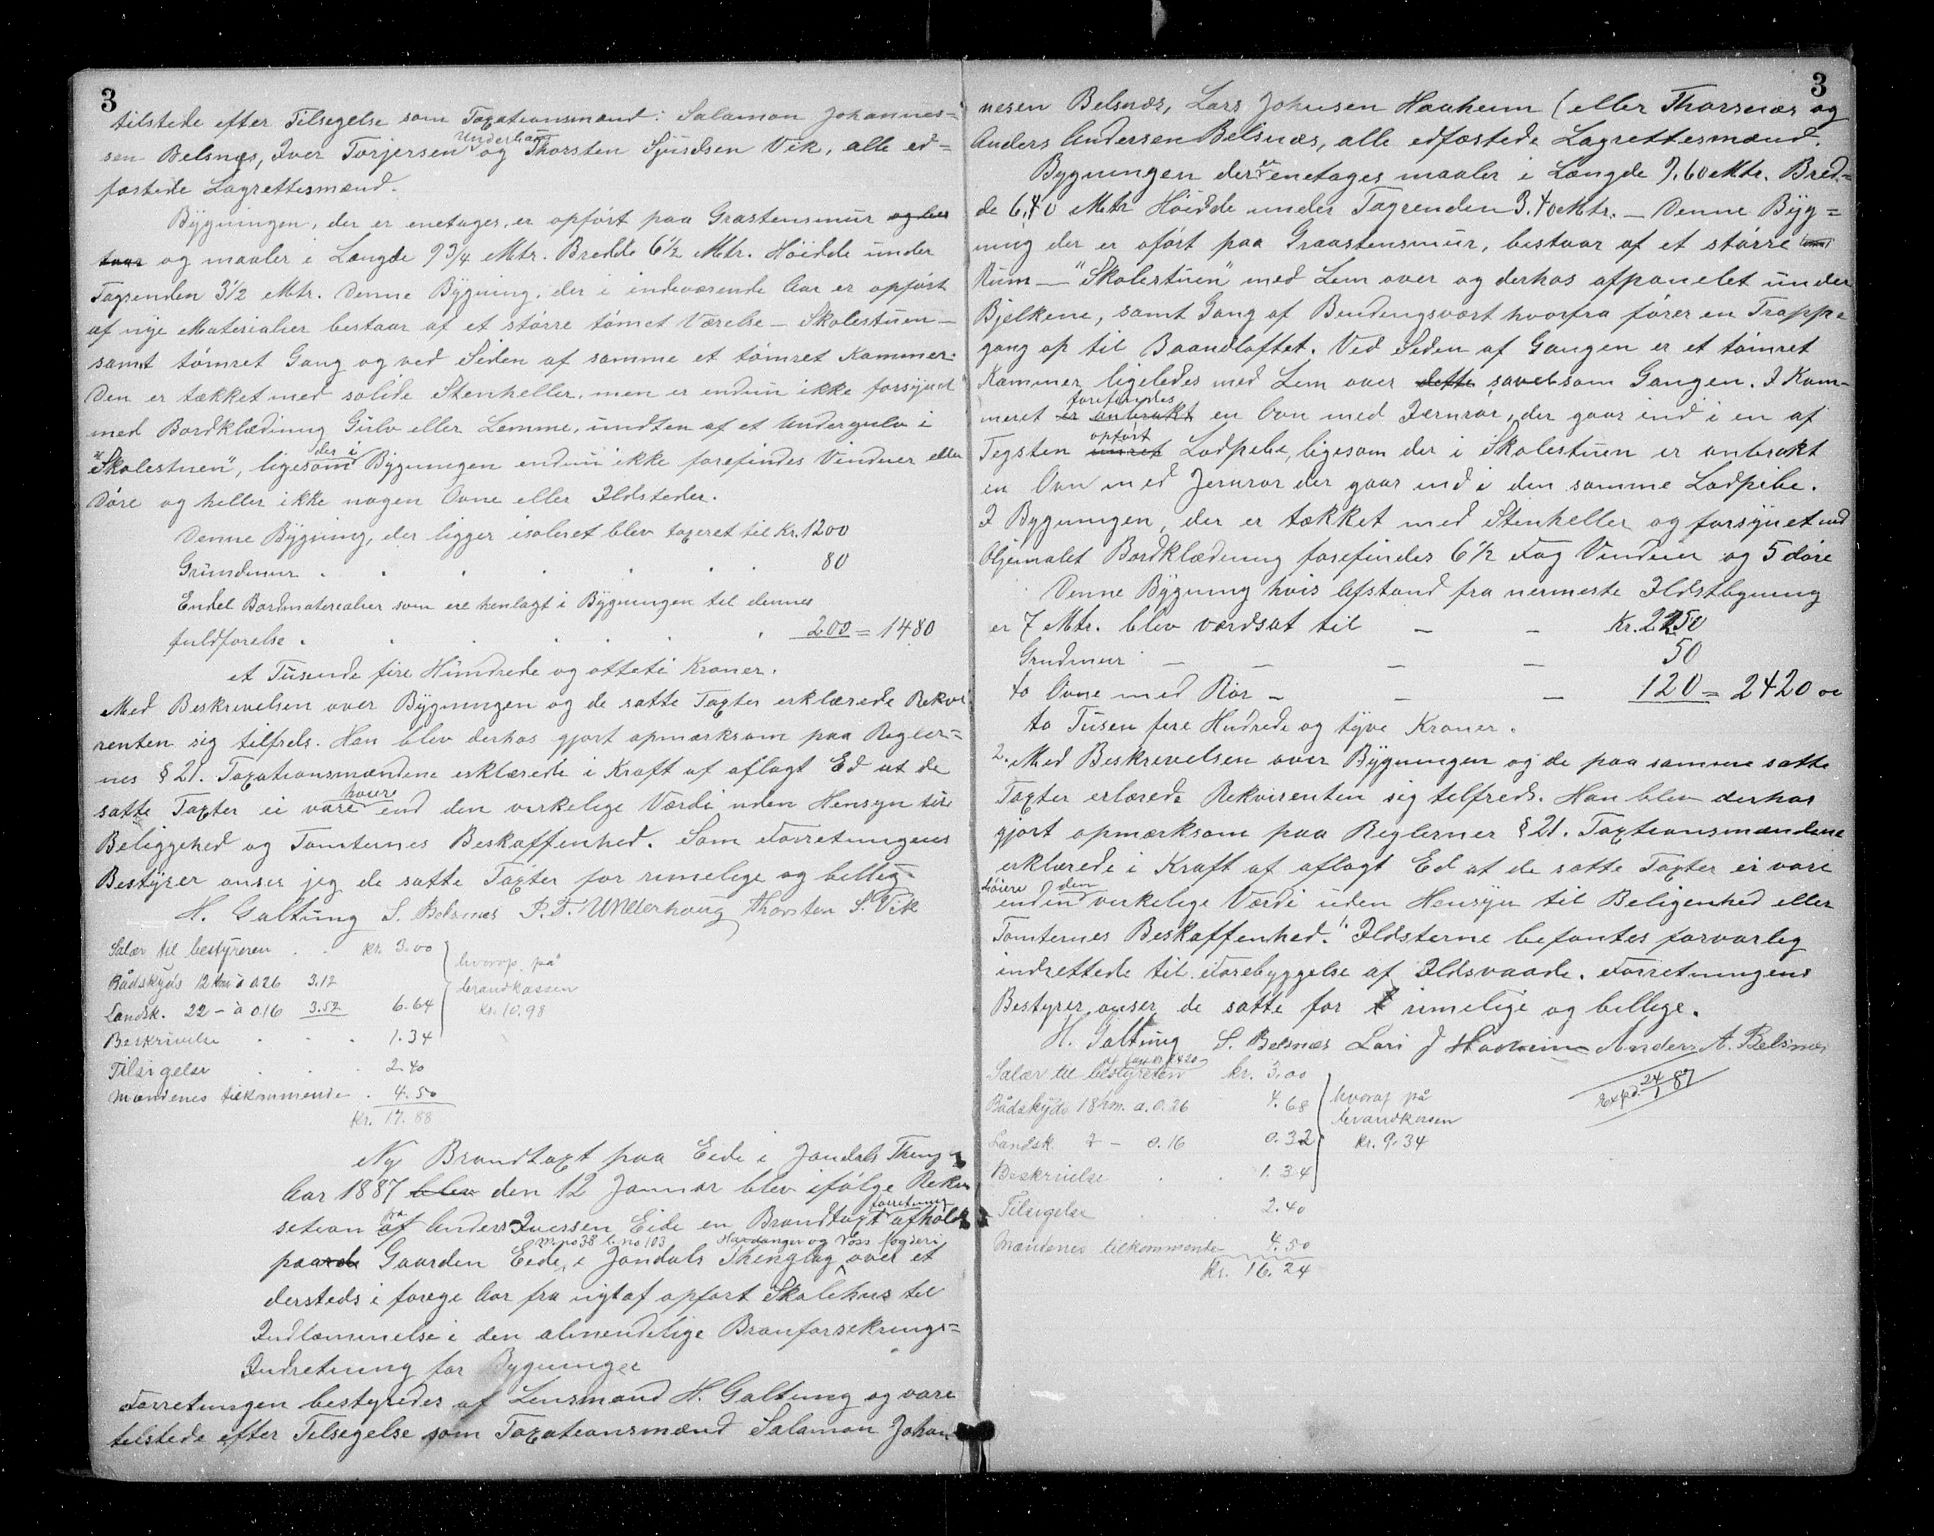 3
tilstede efter Tilsegelse som Taxationsmænd: Salamon Johannes=
sen Belsnæs, Iver Torjersen Underhaug og Thorsten Sjusdsen Vik, alle ed=
fæstede Lagrettesmænd.
Bygningen, der er enetages, er opført paa Graastensmur og bes
taar og maaler i Længde 9 3/4 Mtr. Bredde 6 1/2 Mtr. Høidde under
Tagrenden 3 1/2 Mtr. Denne Bygning, der i indeværende Aar er opført
af nye Materialier bestaar af et større tømret Værelse – Skolestuen –
samt tømret Gang og ved Siden af samme et tømret Kammer.
Den er tækket med solide Stenheller, men er endnu ikke forsynet
med Bordklædning Gulv eller Lemme, undten af et Undergulv i
"Skolestuen", ligesom der i Bygningen endnu ikke forefindes Vinduer eller
Døre og heller ikke nogen Ovne eller Ildsteder.
Denne Bygning, der ligger isoleret blev taxeret til Kr. 1200
Grundmur . . . . . . . 80
Endel Bordmaterialier som ere henlagt i Bygningen til dennes
fuldførelse . . . . . . 200 = 1480
et Tusende fire Hundrede og otteti Kroner.
Med Beskrivelsen over Bygningen og de satte Taxter erklærede Rekvi
renten sig tilfreds. Han blev derhos gjort opmærksom paa Regler=
nes § 21. Taxationsmændene erklærede i Kraft af aflagt Ed at de
satte Taxter ei vare høiere end den virkelige Værdi uden Hensyn til
Beliggehed og Tomternes Beskaffenhed. Som Forretningens
Bestyrer anser jeg de satte Taxter for rimelige og billig.
H. Galtung S. Belsnæs I. T. Underhaug Thorsten S. Vik
Salær til bestyreren . . kr. 3.00
Bådskyds 12 km à 0.26 3.12
Landsk. 22 – à 0.16 3.52 6.64
Beskrivelse . . . 1.34
hvoraf på
brandkassen
kr. 10.98
Tilsigelse . . . 2.40
Mændenes tilkommende . 4.50
kr. 17.88
Ny Brandtaxt paa Eide i Jondals Thinglag
Aar 1887 blev den 12 Januar blev ifølge Rekvi
sition af fra Anders Iversen Eide en Brandtaxt forretning afholdt
paa Gaarden Eide, m. no 38 l. no 103 i Jondals Thinglag Hardanger og Voss Fogderi over et
dersteds i forege Aar fra nyt af opført Skolehus til
Indlemmelse i den almendelige Branforsekrings=
Indretning for Bygninger
Forretningen bestyredes af Lensmand H. Galtung og vare
tilstede efter Tilsegelse som Taxationsmænd Salamon Johan
3
nesen Belsnæs, Lars Johnsen Haaheim (eller Thorsnæs og
Anders Andersen Belsnæs, alle edfæstede Lagrettesmænd.
Bygningen der er enetages maaler i Længde 9.60 Mtr. Bred=
de 6,40 Mtr Høidde under Tagrenden 3.40 Mtr. – Denne Byg=
ning der er oført paa Graastensmur, bestaar af et større
Rum – "Skolestuen" med Lem over og derhos afpanelet under
Bjelkene, samt Gang af Bindingsvært hvorfra fører en Trappe
gang op til Baandloftet. Ved Siden af Gangen er et tømret
Kammer ligeledes med Lem over dette savel som Gangen. I Kam=
meret er anbrakt forefindes en Ovn med Jernrør, der gaar ind i en af
Tegsten muret opført Lodpebe, ligesom der i Skolestuen er anbrakt
en Ovn med Jernrør der gaar ind i den samme Lodpibe.
I Bygningen, der er tækket med Stenheller og forsynet med
Oljemalet Bordklædning forefindes 6 1/2 Fag Vinduer og 5 døre
Denne Bygning hvis Afstand fra nermeste Ildstbygning
er 7 Mtr. blev værdsat til – – Kr. 2250
Grudmur – – – – 50
to Ovne med Rør – – – 120 = 2420 00
to Tusen fire Hudrede og tyve Kroner.
2. Med Beskrevelsen over Bygningen og de paa samme satte
Taxter erlærede Rekvirenten sig tilfreds. Han blev derhos
gjort opmærksom paa Reglernes § 21. Taxtionsmændene
erklærede i Kraft af aflagt Ed at de satte Taxter ei vare
høiere end den virkelige Værdi uden Hensyn til Beligenhed eller
Tomternes Beskaffenhed. Ildsterne befantes forvarlig
indrettede til Forebyggelse af Ildsvaade. Forretningens
Bestyrer anser de satte for rimelige og billige.
H. Galtung S. Belsnæs Lars J Haaheim Anders A. Belsnæs
Salær til bestyreren af taxt kr 2420 kr. 3.00
Bådskyds 18 km. a. 0.26 4.68
Landsk 2 – 0.16 0.32
Beskrivelse . . 1.34
hvoraf på
brandkassen
kr. 9.34
Exped. 24/1 87
Tilsigelse . 2.40
Mændenes tilkommende 4.50
kr. 16.24